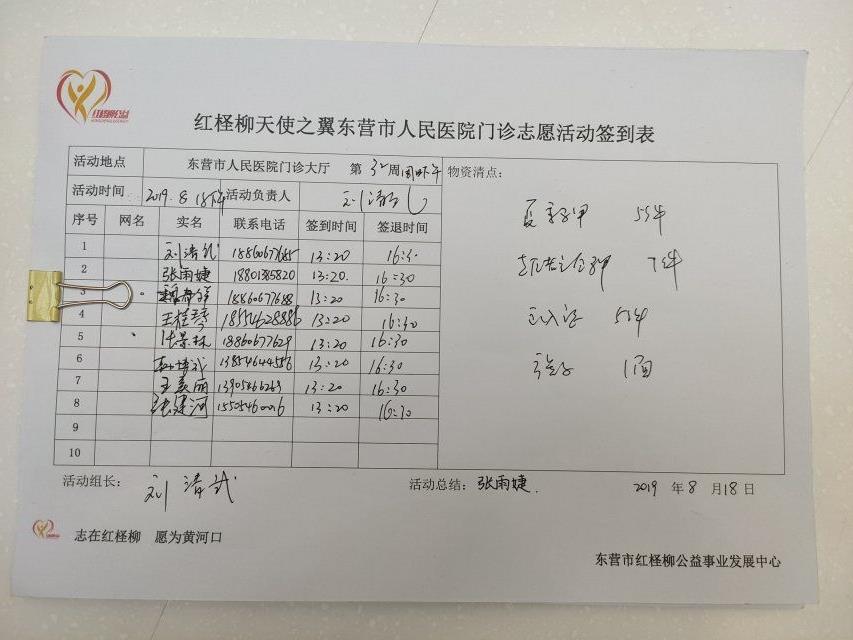 红柽柳公益
红柽柳天使之翼东营市人民医院门诊志愿活动签到表
活动地点 东营市人民医院门诊大厅 第 32 周 周日下午 物资清点:
活动时间 2019.8.18下午 活动负责人
序号 网名 实名 联系电话 签到时间 签退时间
1 刘清武 18860677685 13:20 16:30
2 张雨婕 18801385820 13:20. 16:30
3 18860677688 13:20 16:30
4 王桂琴 18554628886 13:20 16:30
5 张景林 18860677629 13:20 16:30
6 13854644556 13:20 16:30
7 王美丽 13905466263 13:20 16:30
8 张建河 15505460016 13:20 16:30
9
10
夏 5件
7件
5件
1面
活动组长: 刘清武 活动总结: 张雨婕. 2019 年 8 月 18 日
志在红柽柳 愿为黄河口
东营市红柽柳公益事业发展中心